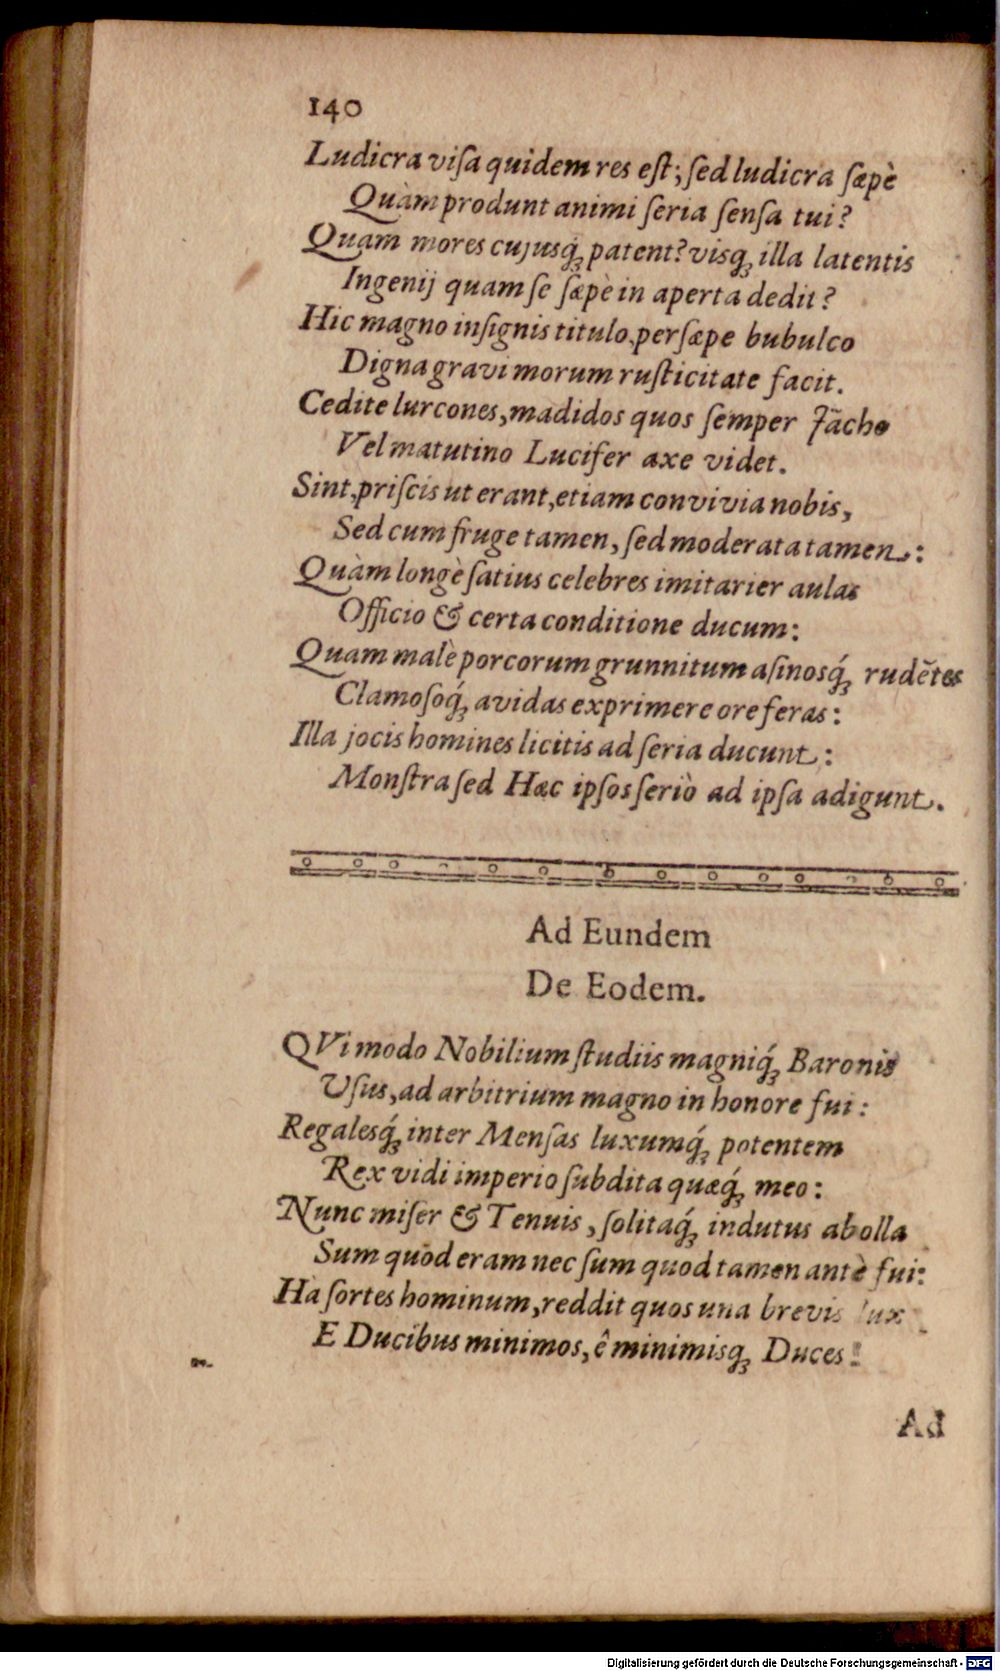 140
Ludicra viſa quidem res eſt; ſed ludicra ſæpè
Quàm produnt animi ſeria ſenſa tui?
Quam mores cujusq́; patent? visq́; illa latentis
Ingenij quam ſe ſæpè in aperta dedit?
Hic magno inſignis titulo, perſæpe bubulco
Digna gravi morum ruſticitate facit.
Cedite lurcones, madidos quos ſemper Jācho
Vel matutino Lucifer axe videt.
Sint, priſcis ut erant, etiam convivia nobis,
Sed cum fruge tamen, ſed moderata tamen:
Quàm longè ſatius celebres imitarier aulas
Officio & certa conditione ducum:
Quam malè porcorum grunnitum aſinosq́; rudētes
Clamoſoq́; avidas exprimere ore feras:
Illa jocis homines licitis ad ſeria ducunt:
Monſtra ſed Hæc ipſos ſeriò ad ipſa adigunt.
Ad Eundem
De Eodem.
QVi modo Nobilium ſtudiis magniq́; Baronis
Uſus, ad arbitrium magno in honore fui:
Regalesq́; inter Menſas luxumq́; potentem
Rex vidi imperio ſubdita quæq́; meo:
Nunc miſer & Tenuis, ſolitaq́; indutus abolla
Sum quod eram nec ſum quod tamen antè fui:
Ha ſortes hominum, reddit quos una brevis lux
E Ducibus minimos, ê minimisq́; Duces!
Ad
Digitalisierung gefördert durch die Deutsche Forschungsgemeinschaft - DFG